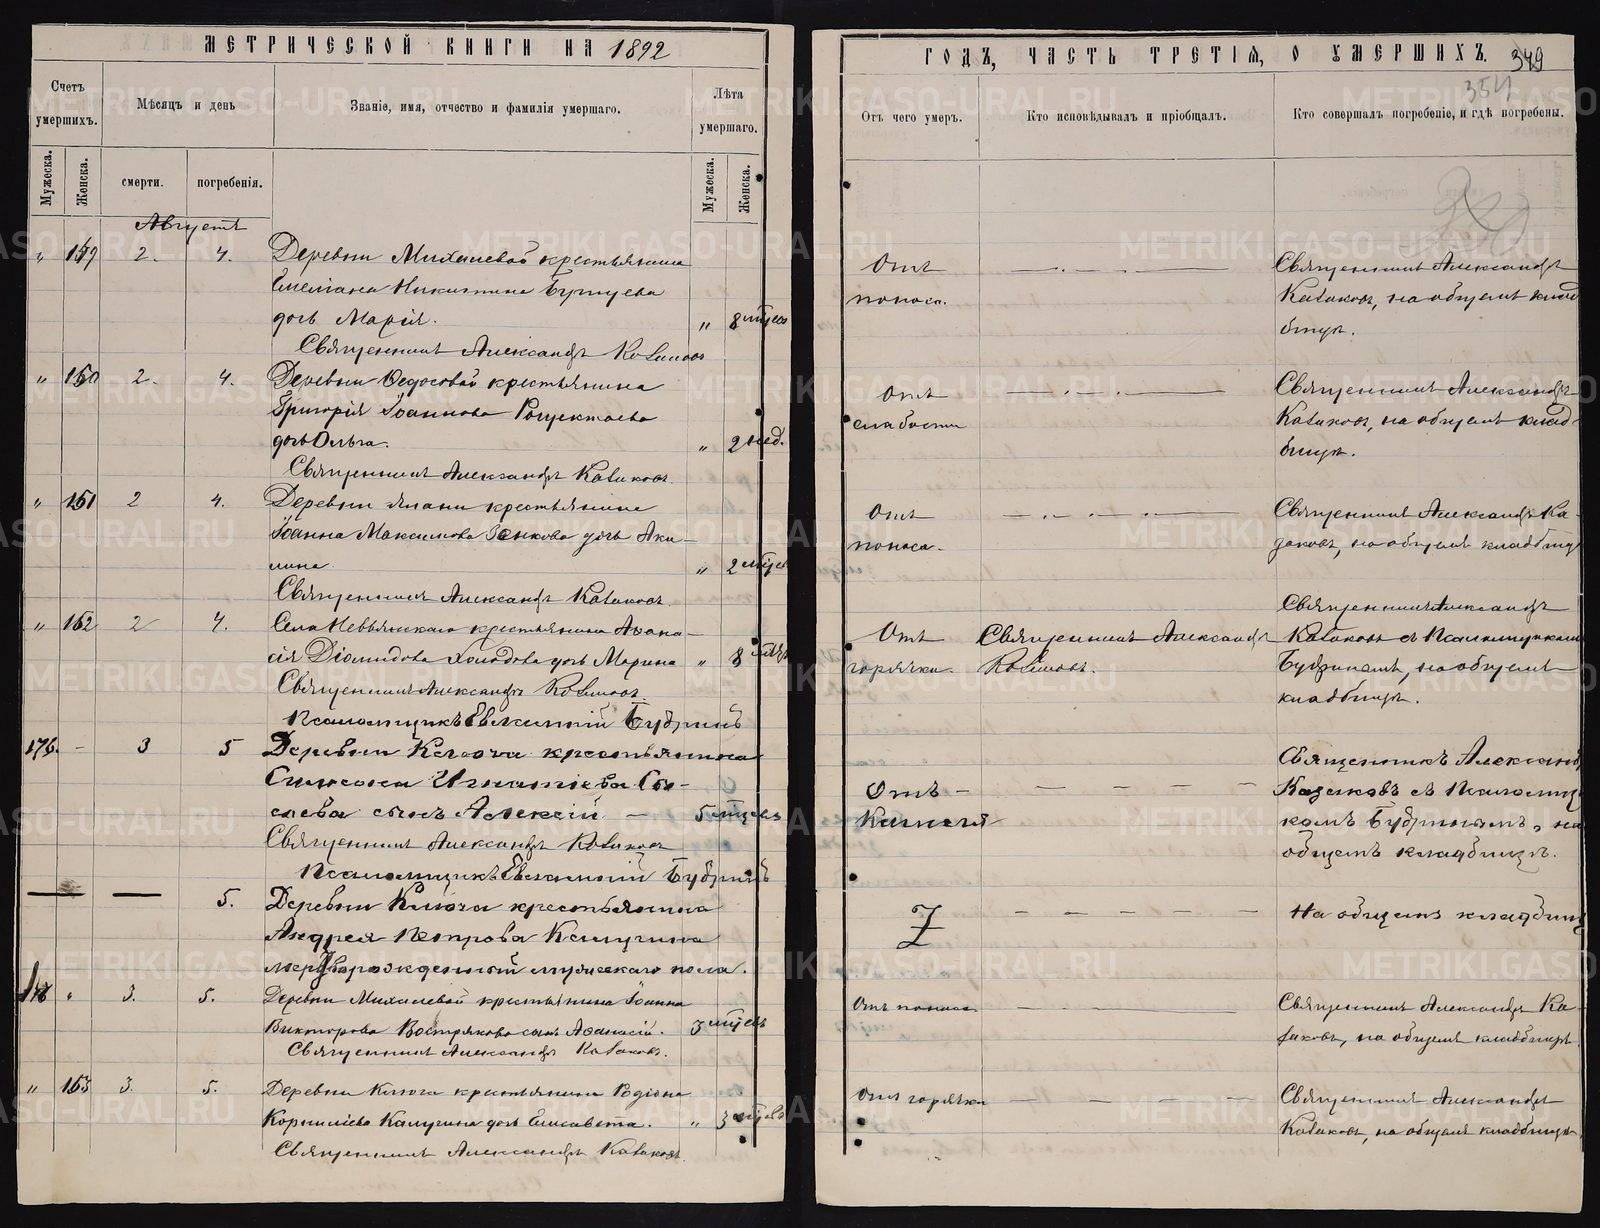 МЕТРИЧЕСКОЙ КНИГИ НА 1892
Счетъ умершихъ.
Мужеска.
Женска.
Мѣсяцъ и день
смерти.
погребенія.
Званіе, имя, отчество и фамилія умершаго.
Лѣта умершаго.
Мужеска.
Женска.
Августъ
" 159 2. 4. Деревни Михалевой крестьянина
Емеліана Никитина
дочь Марія. " 8 мѣсяц
Священникъ Александръ Казаковъ
" 160 2. 4. Деревни Ѳедосовой крестьянина
Григорія Іоаннова
дочь Ольга. " 2 нед.
Священникъ Александръ Казаковъ.
" 161 2 4. Деревни крестьянина
Іоанна Максимова дочь Аки-
лина " 2 мѣсяц
Священникъ Александръ Казаковъ.
" 162 2 4. Села Невьянскаго крестьянина Аѳана-
сія Діомидова Холодова дочь Марина " 8
Священникъ Александръ Казаковъ.
Псаломщикъ Евлампій Будринъ
176. - 3 5 Деревни Ключа крестьянина
Симеона Игнатіева Сы-
соева сынъ Алексій — 5 мѣсяцевъ
Священникъ Александръ Казаковъ
Псаломщикъ Евлампій Будринъ
— — 5. Деревни Ключа крестьянина
Андрея Петрова Калугина
мертворожденный мужескаго пола.
" 3. 5. Деревни Михалевой крестьянина Іоанна
Викторова Вострякова сынъ Аѳанасій. 3 мѣсяц
Священникъ Александръ Казаковъ.
" 163 3. 5. Деревни Ключа крестьянина Родіона
Корниліева Калугина дочь Елисавета. " 3 мѣсяц
Священникъ Александръ Казаковъ.
ГОДЪ, ЧАСТЬ ТРЕТІЯ, О УМЕРШИХЪ. 349
354
Отъ чего умеръ.
Кто исповѣдывалъ и пріобщалъ.
Кто совершалъ погребеніе, и гдѣ погребены.
Отъ Священникъ Александръ
поноса. Казаковъ, на общемъ клад-
бищѣ.
Отъ Священникъ Александръ
слабости Казаковъ, на общемъ клад-
бищѣ.
Отъ Священникъ Александръ Ка-
поноса. заковъ, на общемъ кладбищѣ
Священникъ Александръ
Отъ Священникъ Александръ Казаковъ съ Псаломщикомъ
горячки. Казаковъ. Будринымъ, на общемъ
кладбищѣ.
Священникъ Александръ
Отъ — Казаковъ съ Псаломщи-
Кашеля комъ Будринымъ, на
общемъ кладбищѣ.
На общемъ кладбищѣ
Отъ поноса Священникъ Александръ Ка-
заковъ, на общемъ кладбищѣ.
Отъ горячки Священникъ Александръ
Казаковъ, на общемъ кладбищѣ
METRIKI.GASO-URAL.RU